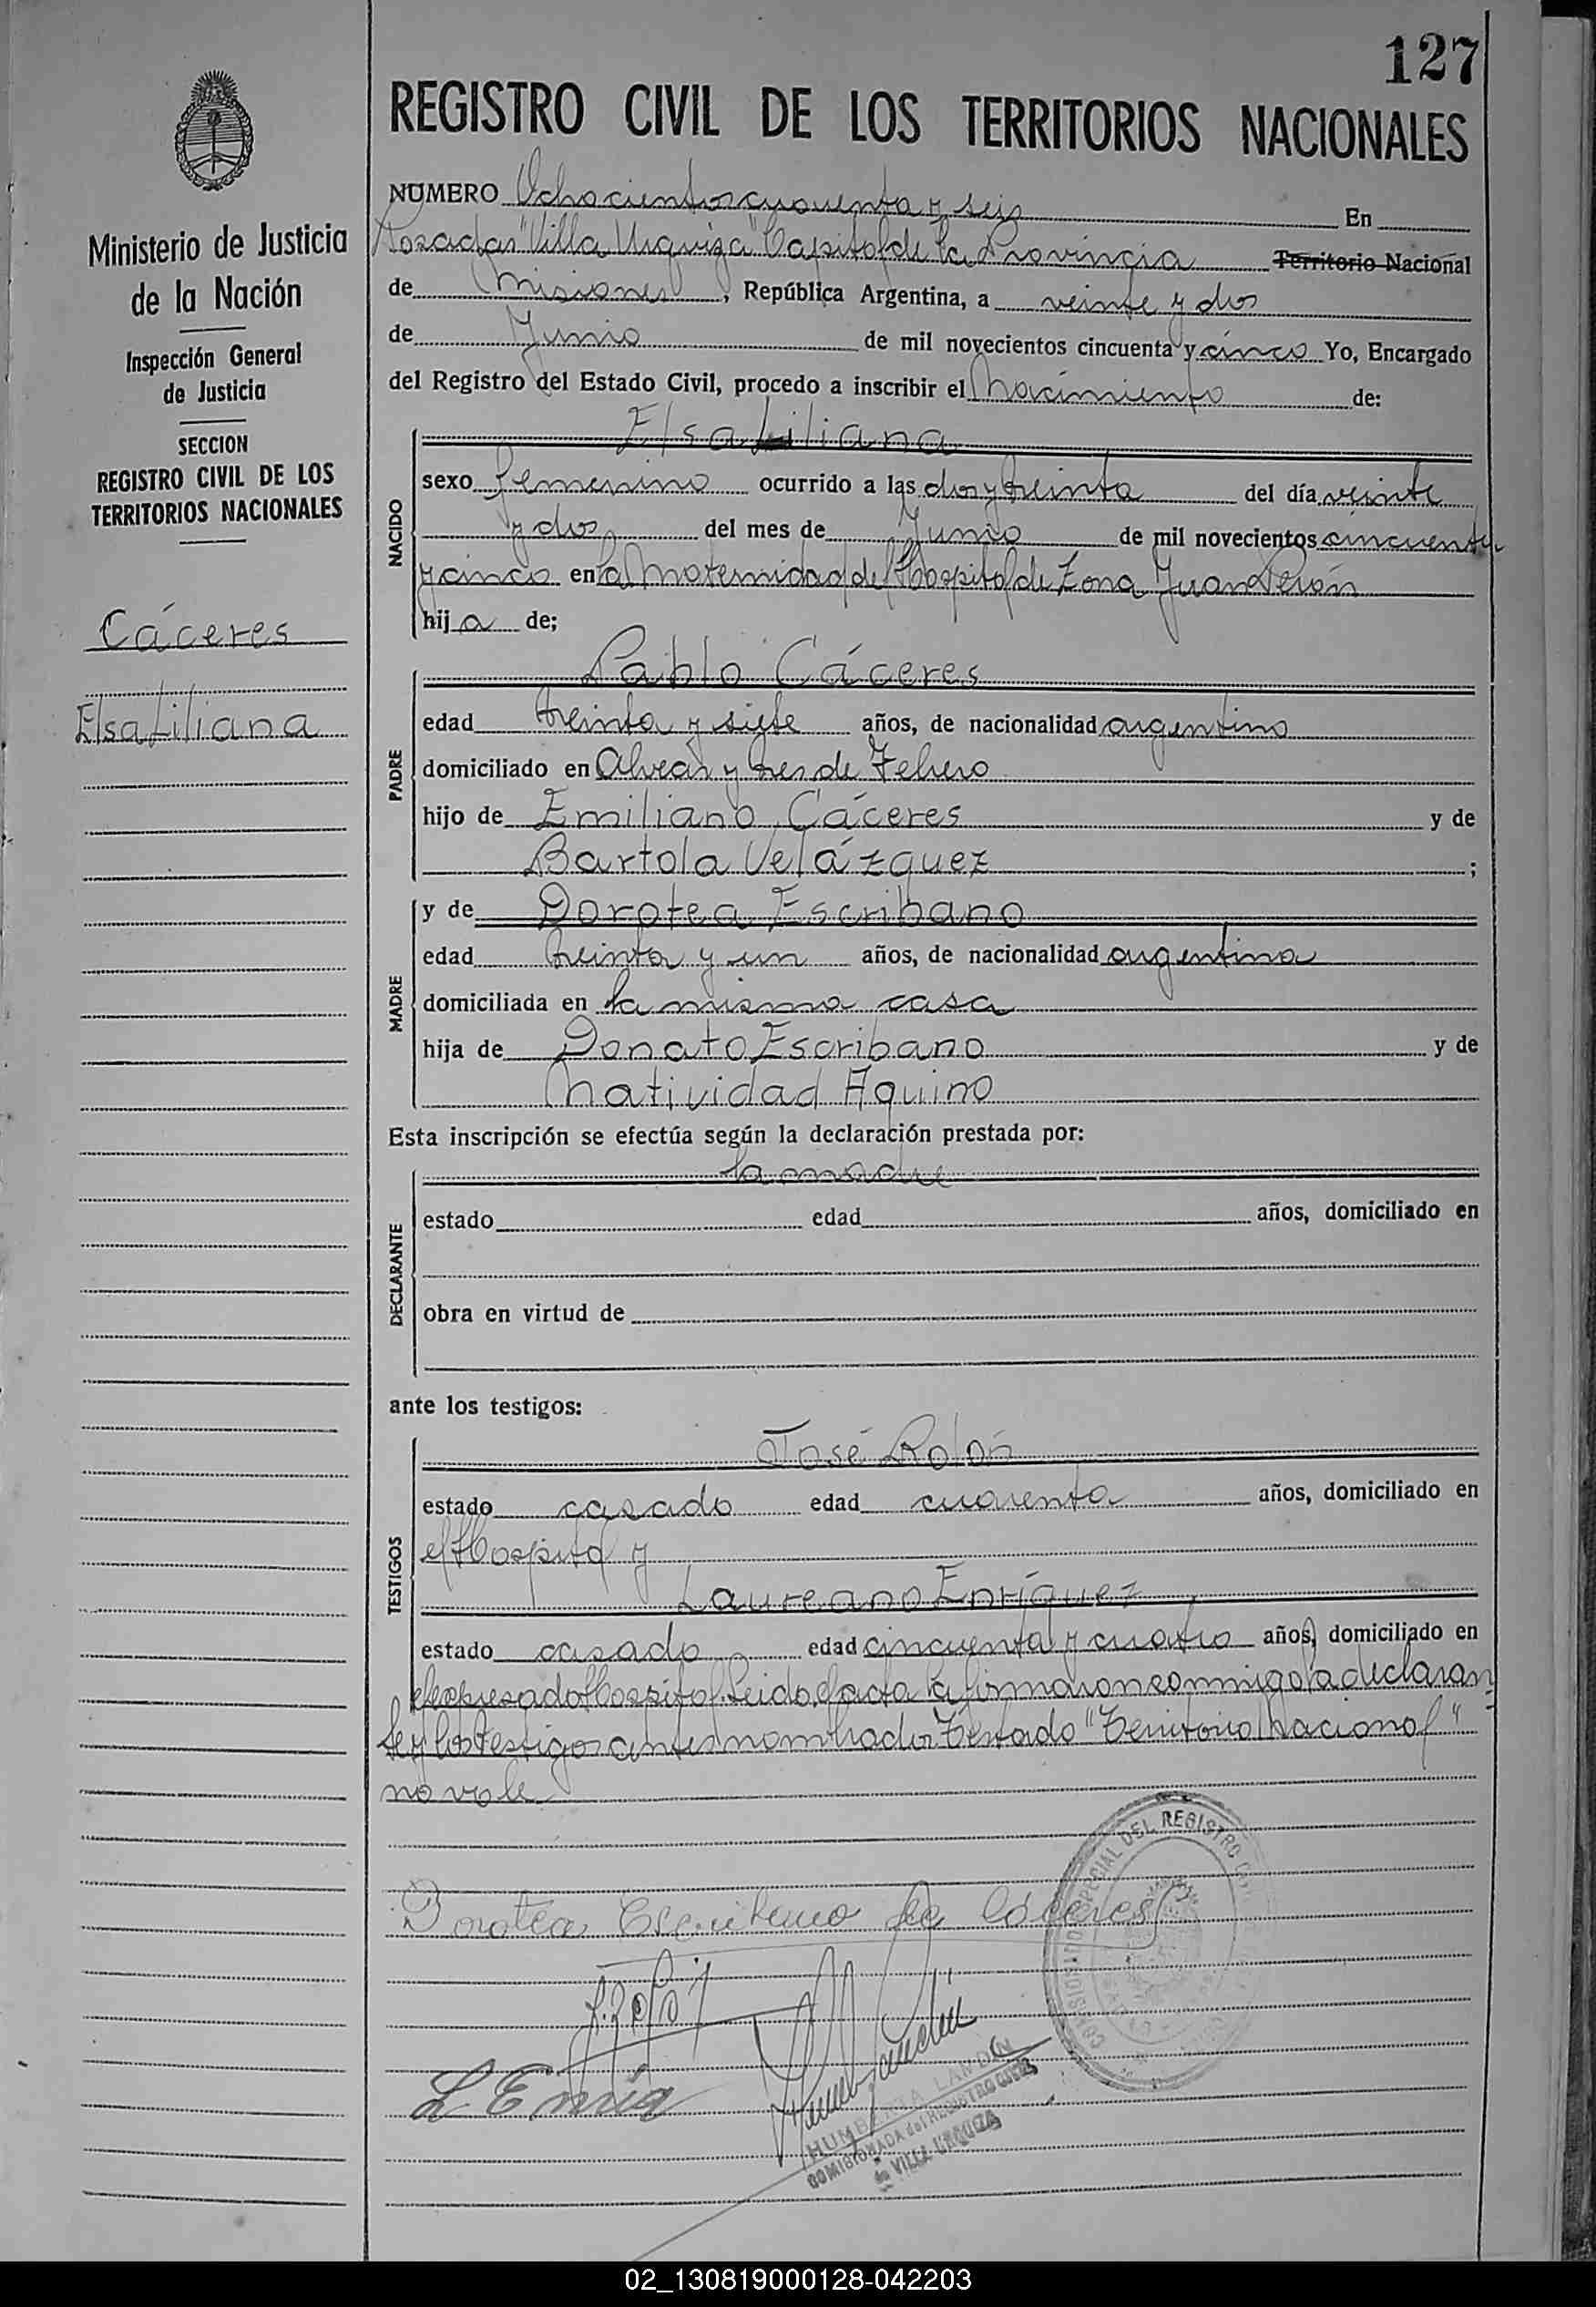 127
REGISTRO CIVIL DE LOS TERRITORIOS NACIONALES
Ministerio de Justicia
de la Nación
Inspección General
de Justicia
SECCION
REGISTRO CIVIL DE LOS
TERRITORIOS NACIONALES
Cáceres
Elsa Liliana
NUMERO Ochocientos cuarenta y seis En
Posadas "Villa Urquiza" Capital de la Provincia Territorio Nacional
de Misiones, República Argentina, a veinte y dos
de Junio de mil novecientos cincuenta y cinco Yo, Encargado
del Registro del Estado Civil, procedo a inscribir el Nacimiento de:
NACIDO
Elsa Liliana
sexo femenino ocurrido a las dos y treinta del día veinte
y dos del mes de Junio de mil novecientos cincuenta
y cinco en la Maternidad del Hospital de Zona Juan Perón
hija de;
PADRE
Pablo Cáceres
edad treinta y siete años, de nacionalidad argentino
domiciliado en Alvear y tres de Febrero
hijo de Emiliano Cáceres y de
Bartola Velázquez ;
MADRE
y de Dorotea Escribano
edad treinta y un años, de nacionalidad argentina
domiciliada en la misma casa
hija de Donato Escribano y de
Natividad Aquino
Esta inscripción se efectúa según la declaración prestada por:
DECLARANTE
la madre
estado edad años, domiciliado en
obra en virtud de
ante los testigos:
TESTIGOS
José Rolón
estado casado edad cuarenta años, domiciliado en
el Hospital y
Laureano Enríquez
estado casado edad cincuenta y cuatro años, domiciliado en
el expresado Hospital. Leida el acta la firmaron conmigo la declaran
te y los testigos antes nombrados Testado "Territorio Nacional"
no vale
Dorotea Escribano de Cáceres
J. Rolón
L Enriq
DEL REGISTRO
HUMBERTA LANDIN
COMISIONADA del REGISTRO CIVIL
de VILLA URQUIZA
02_130819000128-042203